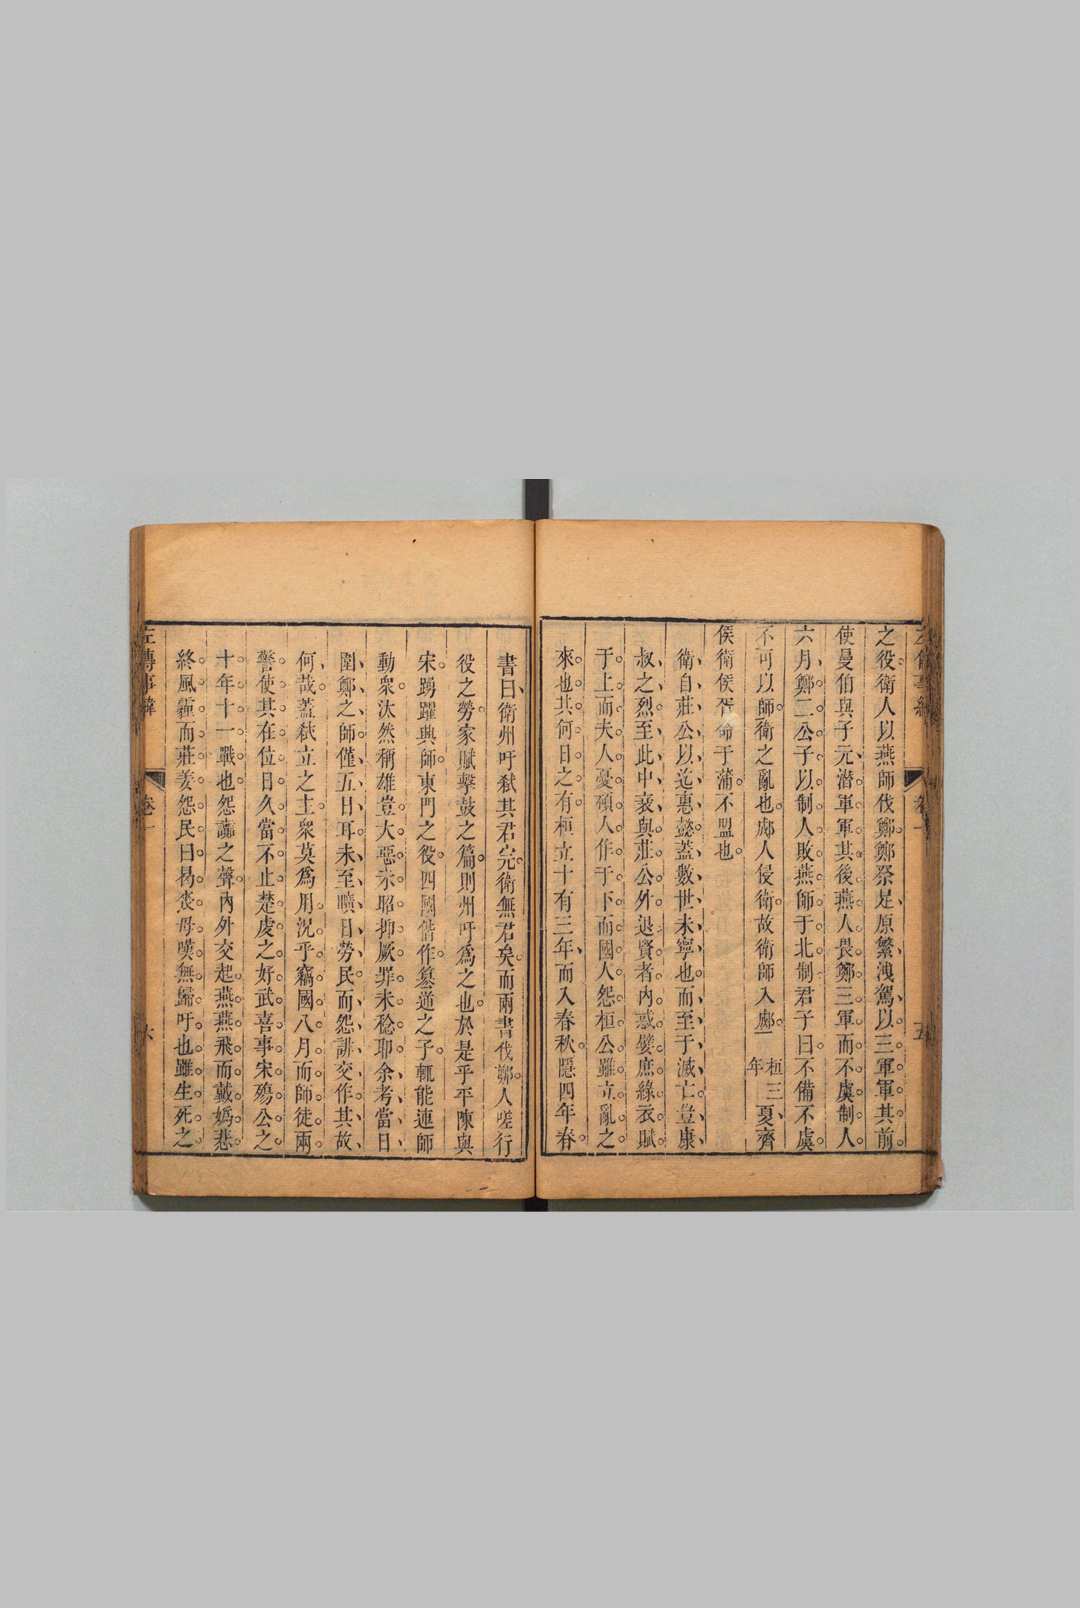 之役衛人以燕師伐鄭鄭祭足原繁洩駕以三軍軍其前
使曼伯與子元潛軍軍其後燕人畏鄭三軍而不虞制人
六月鄭二公子以制人敗燕師于北制君子曰不備不虞
不可以師衛之亂也郕人侵衛故衛師入郕 桓三年 夏齊
侯衛侯胥命于蒲不盟也
衛自莊公以迄惠懿蓋數世未寧也而至于滅亡豈康
叔之烈至此中衰與莊公外退賢者內惑嬖庶綠衣賦
于上而夫人憂碩人作于下而國人怨桓公雖立亂之
來也其何日之有桓立十有三年而入春秋隱四年春
五
書曰衛州吁弒其君完衛無君矣而兩書伐鄭人嗟行
役之勞家賦擊鼓之篇則州吁為之也於是乎平陳與
宋踴躍興師東門之役四國偕作墓道之子輒能連師
動衆汰然稱雄豈大惡未昭抑厥罪未稔耶余考當日
圍鄭之師僅五日耳未至曠日勞民而怨誹交作其故
何哉蓋弒立之主衆莫爲用況乎竊國八月而師徒兩
警使其在位日久當不止楚虔之好武喜事宋殤公之
十年十一戰也怨讟之聲內外交起燕燕飛而戴媯悲
終風霾而莊姜怨民曰曷喪毋嘆無歸吁也雖生死之
左傳事緯
卷一
六